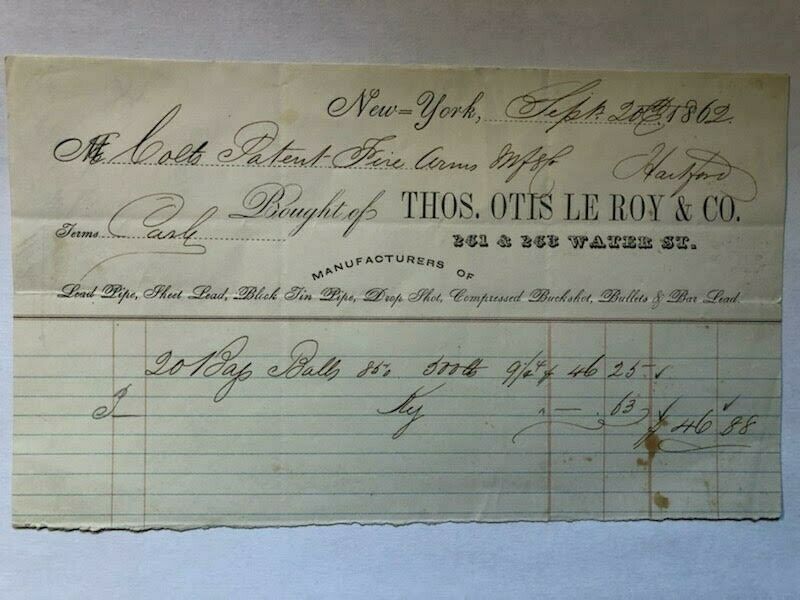 New=York, Sept. 20th 1862.
M Colts Patent Fire Arms Mfg Co Hartford
Bought of THOS. OTIS LE ROY & CO.
Terms Cash
261 & 263 WATER ST.
MANUFACTURERS OF
Lead Pipe, Sheet Lead, Block Tin Pipe, Drop Shot, Compressed Buckshot, Bullets & Bar Lead.
20 Bags Balls 850 500 lb 9 1/4 ¢ 46 25
63
$ 46 88